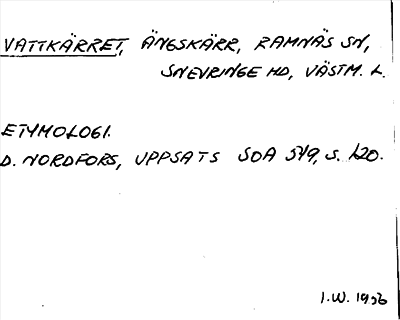 VATTKÄRRET, ÄNGSKÄRR, RAMNÄS SN,
SNEVRINGE HD, VÄSTM. L.
ETYMOLOGI.
D. NORDFORS, UPPSATS SOA 519, S. 120.
I.W. 1936